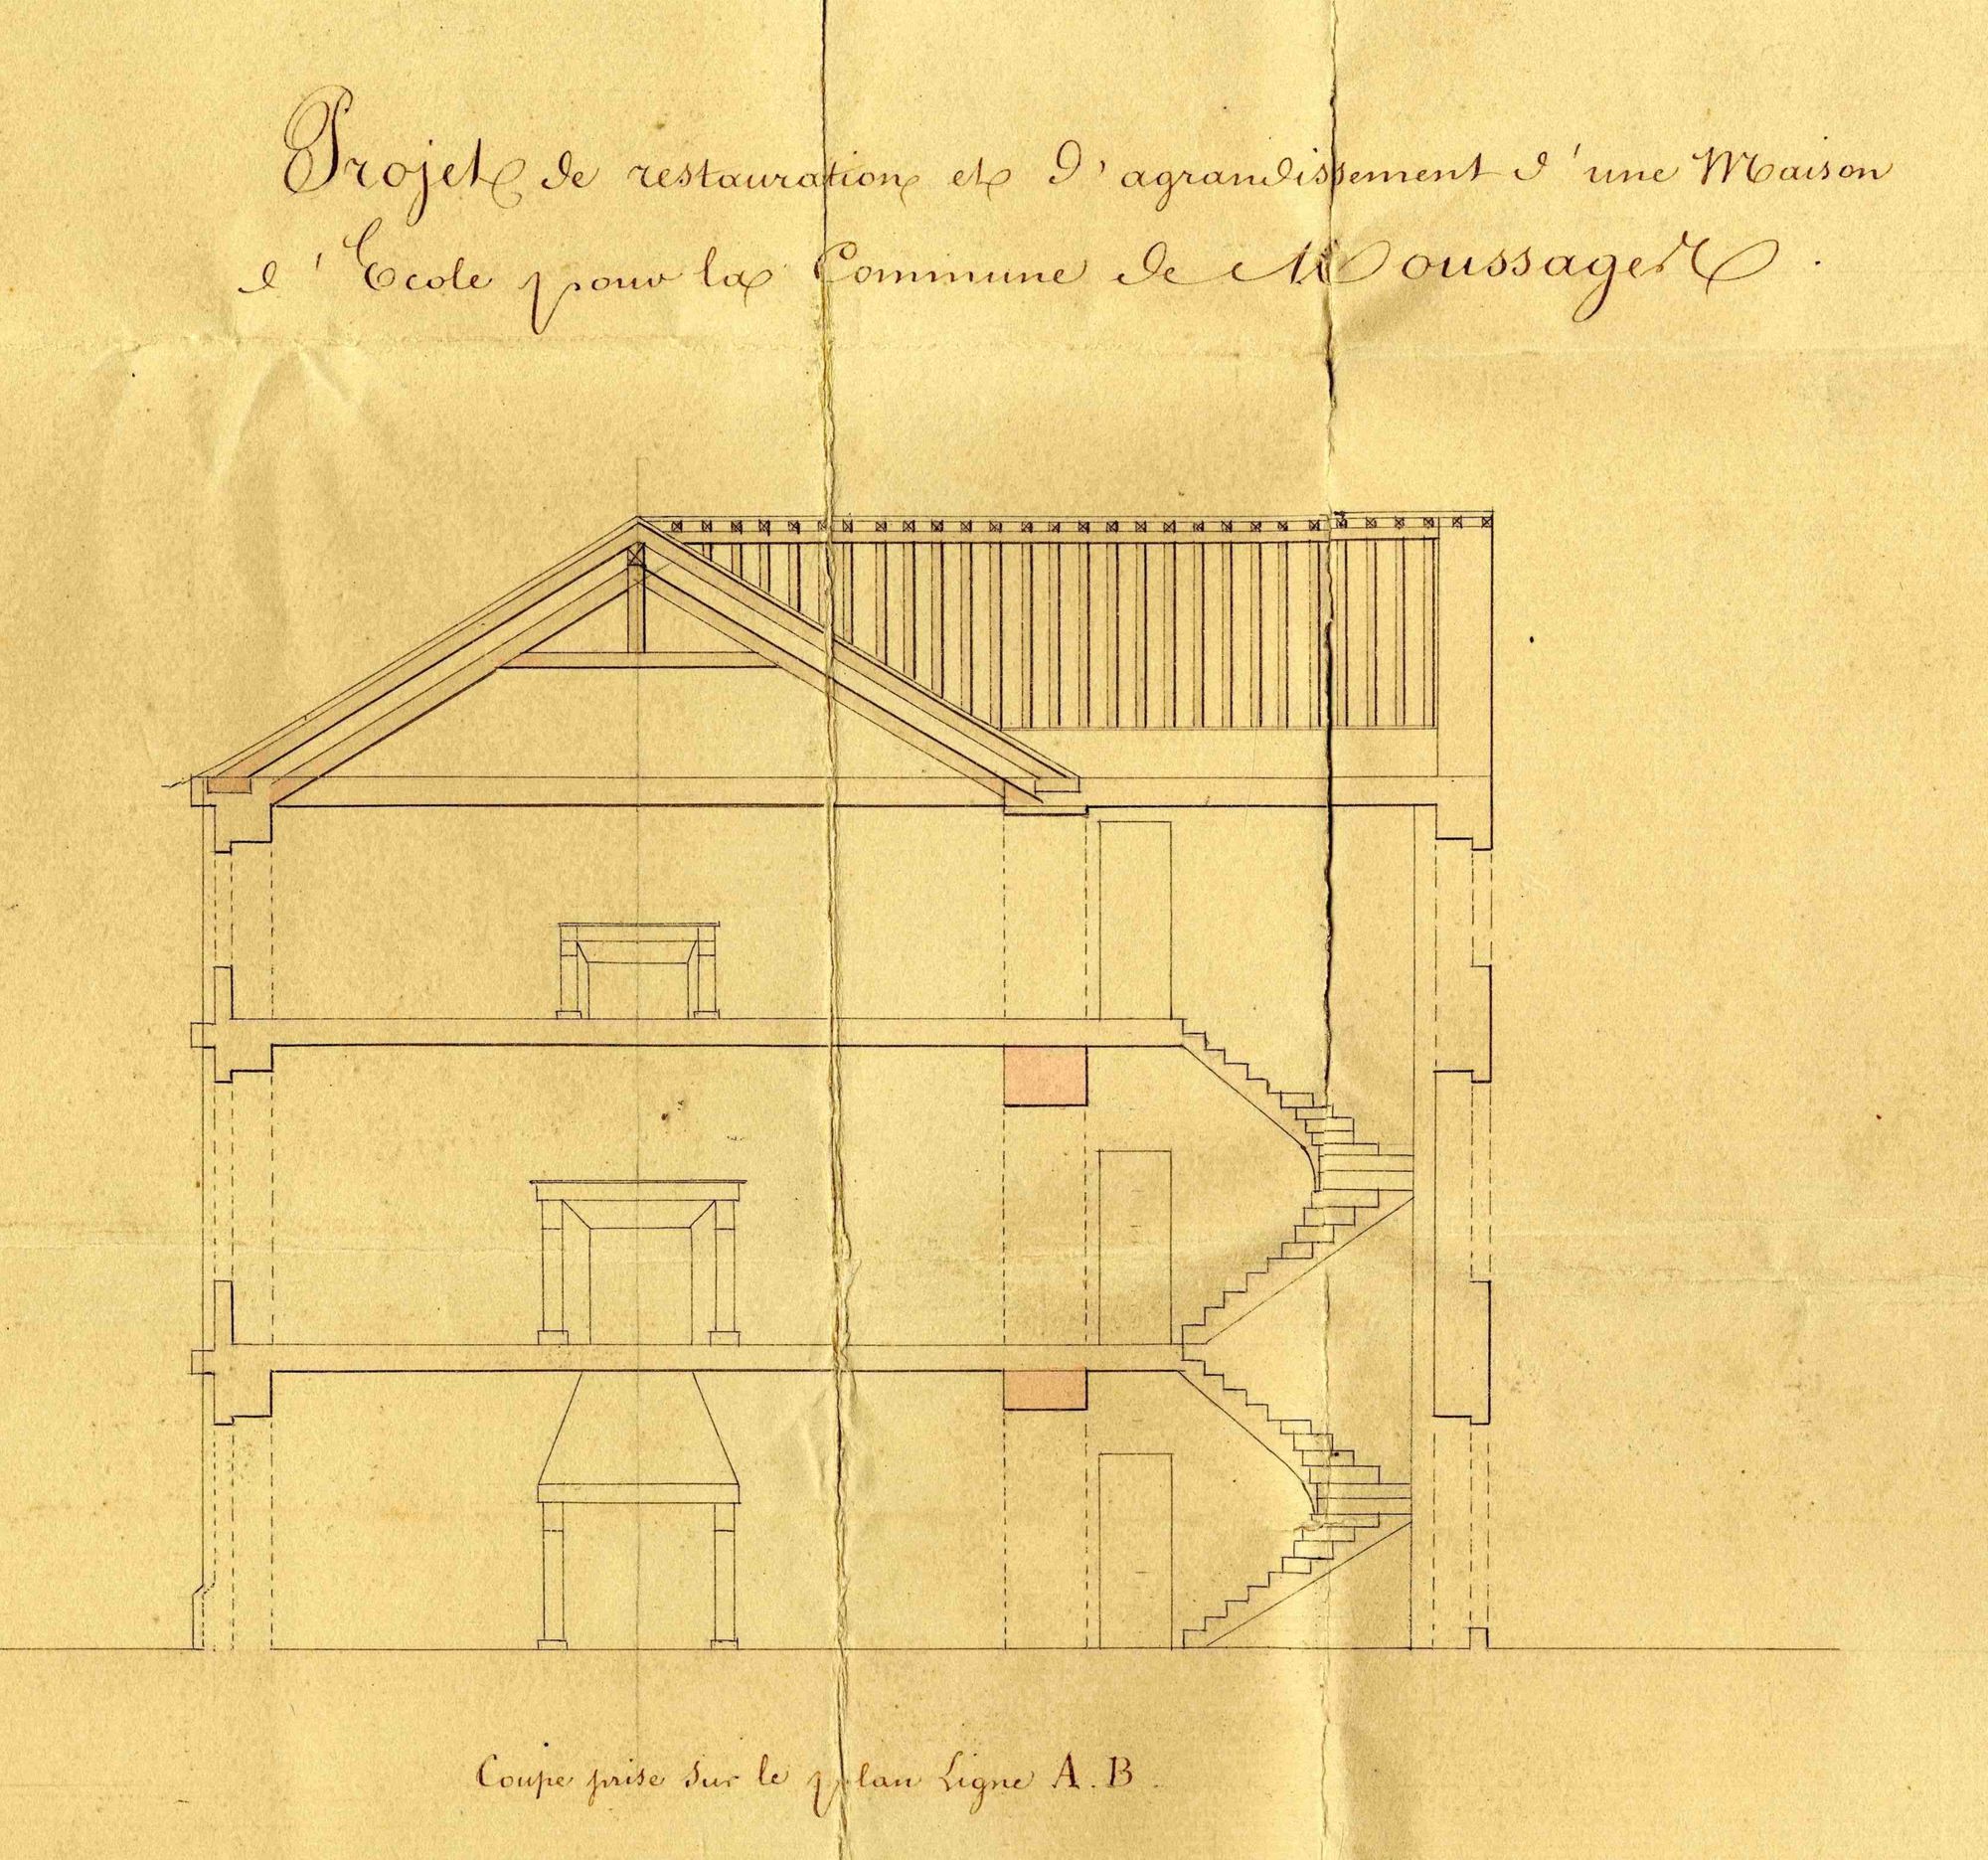 Projet de restauration et d'agrandissement d'une Maison
d'Ecole pour la Commune de Moussages.
Coupe prise sur le plan Ligne A.B.